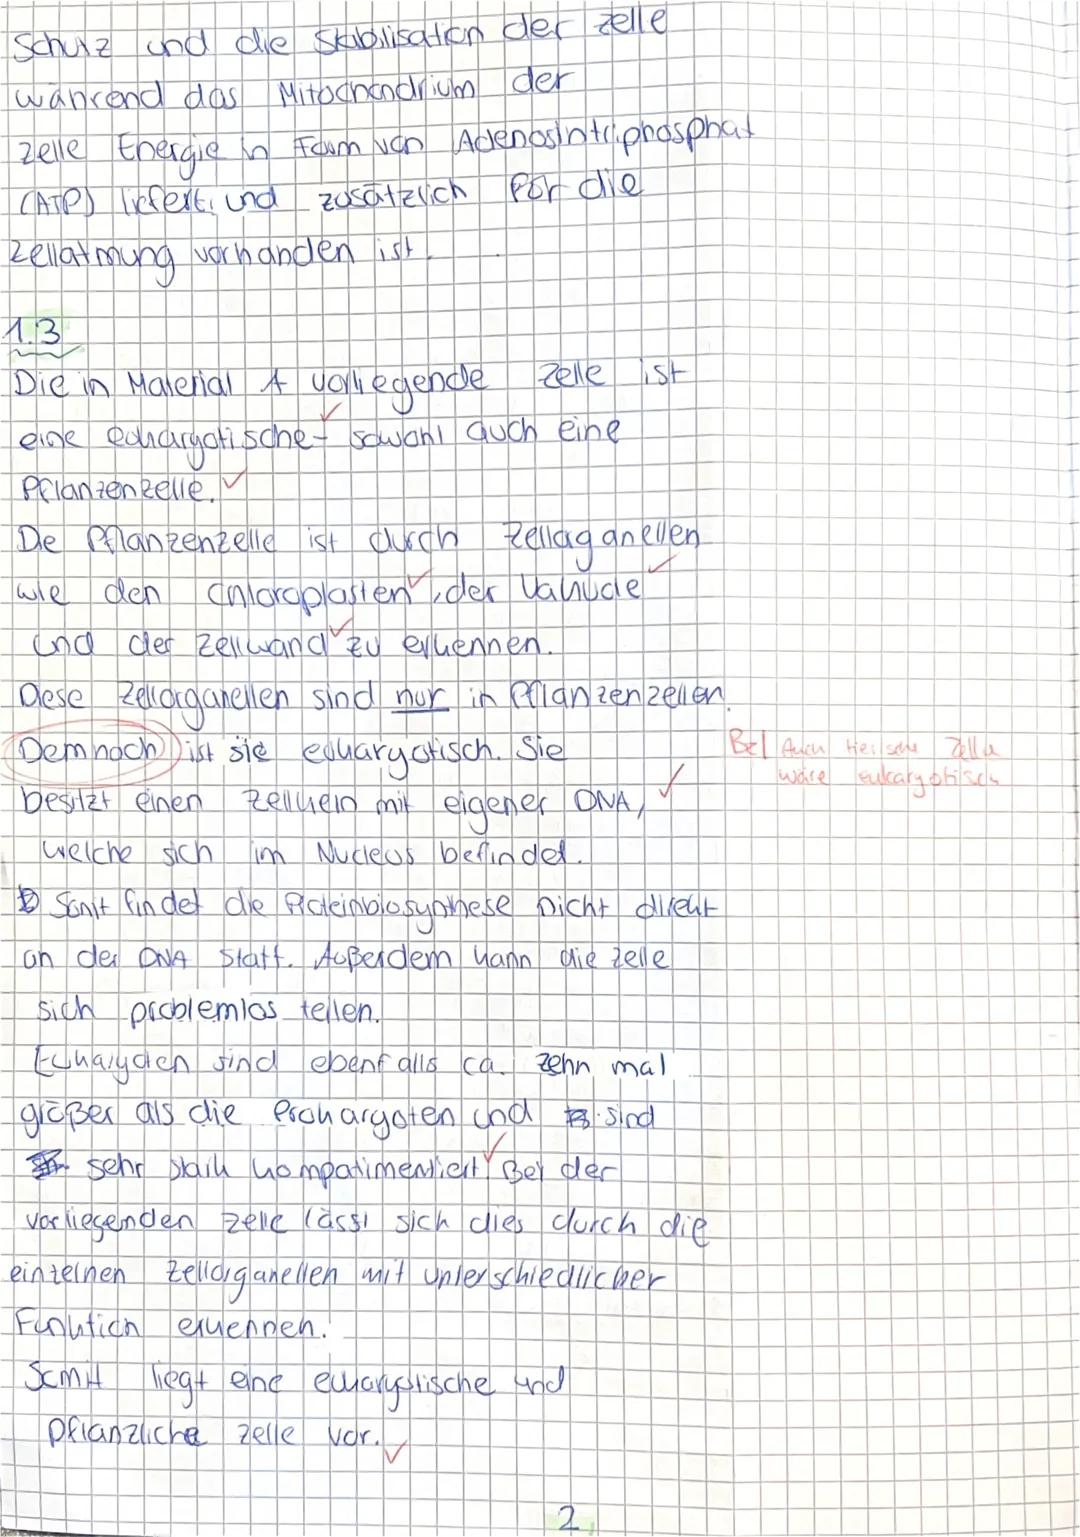 Schutz und die Stabilisation der Zelle
während das Mitochondrium der
Zelle Energie in Form von Adenosintriphosphat
(ATP) liefert, und zusätzlich für die
Zellatmung vorhanden ist.
1.3
Die in Material A vorliegende Zelle ist
eine eukaryotische- sowohl auch eine
Pflanzenzelle.
Die Pflanzenzelle ist durch Zellorganellen
wie den Chloroplasten, der Vakuole
und der Zellwand zu erkennen.
Diese Zellorganellen sind nur in Pflanzenzellen.
Demnach ist sie eukaryotisch. Sie
Bel Auch tierische Zelle
wäre eukaryotisch
besitzt einen Zellkern mit eigener DNA,
welche sich im Nucleus befindet.
Somit findet die Proteinbiosynthese nicht direkt
an der DNA statt. Außerdem kann die Zelle
sich problemlos teilen.
Eukaryoten sind ebenfalls ca. zehn mal
größer als die Prokaryoten und sind
sehr stark kompartimentiert. Bei der
vorliegenden Zelle lässt sich dies durch die
einzelnen Zellorganellen mit unterschiedlicher
Funktion erkennen.
Somit liegt eine eukaryotische und
pflanzliche Zelle vor.
2